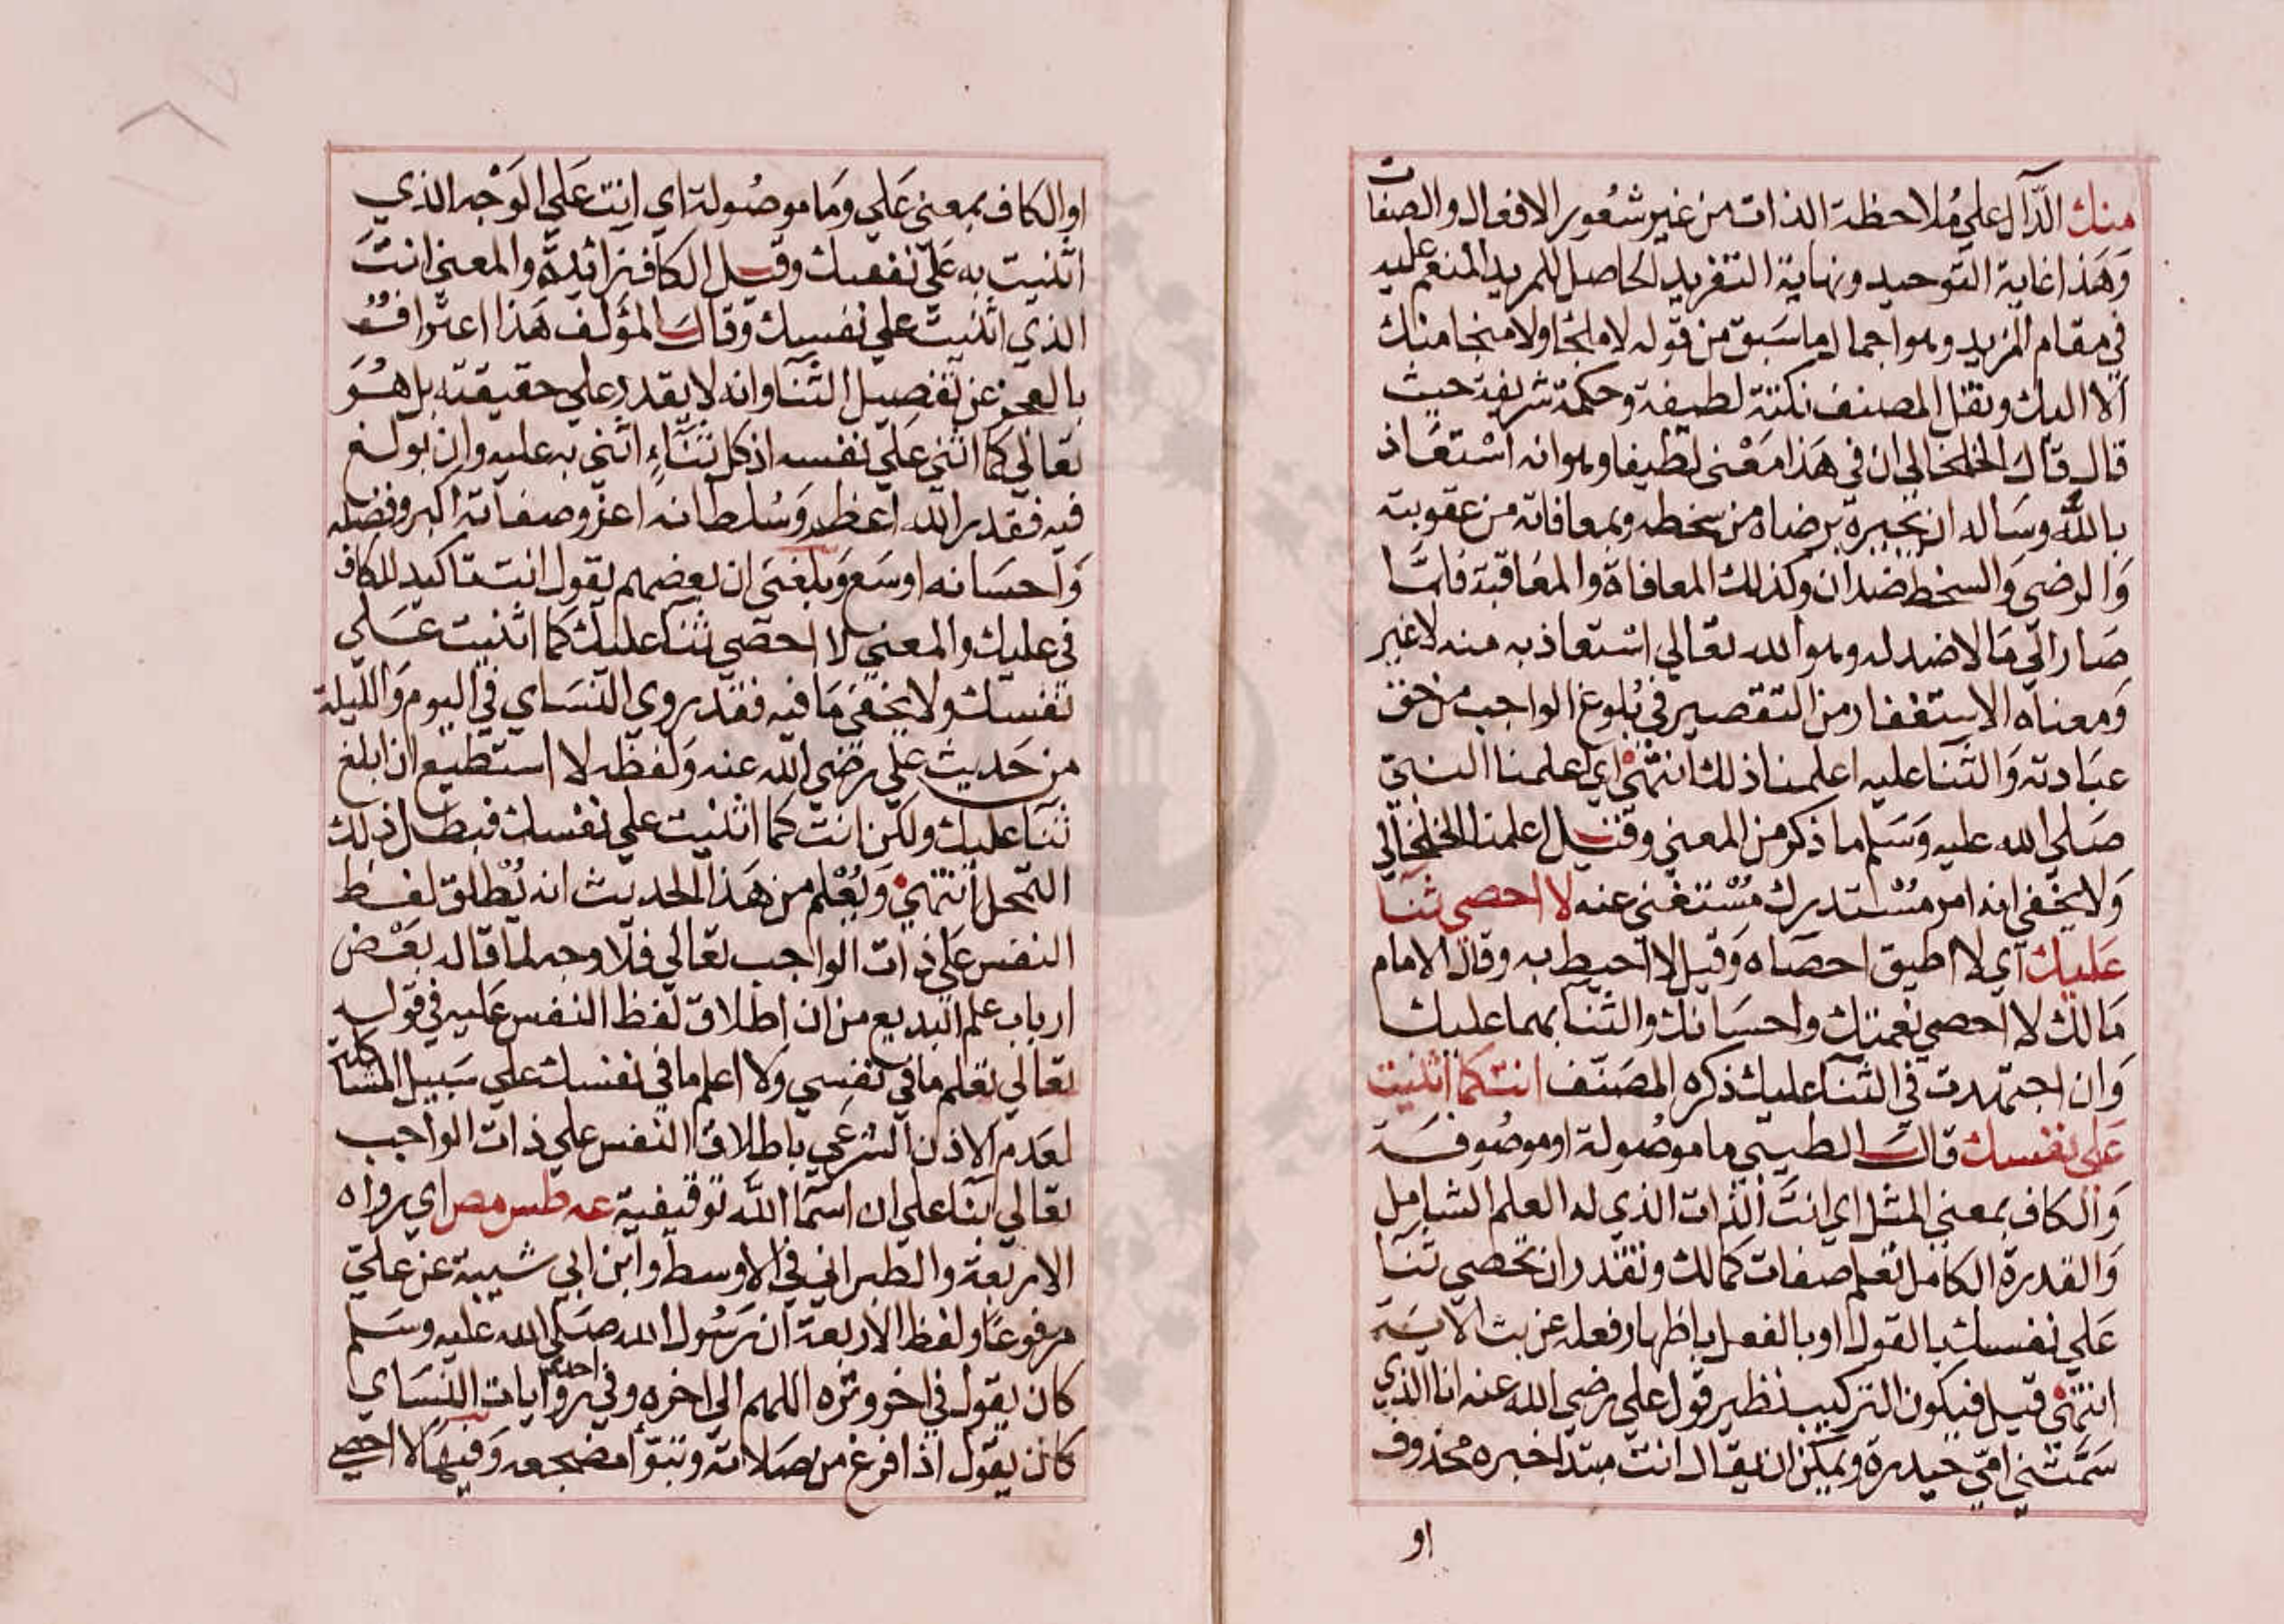 منك الدال علي ملاحظة الذات من غير شعور الافعال والصفات
وهذا غاية التوحيد ونهاية التفريد الحاصل للمريد المنعم عليه
في مقام المزيد وهو اجمال ما سبق من قوله لا ملجا ولا منجا منك
الا اليك ونقل المصنف نكتة لطيفة وحكمة شريفة حيث
قال قال الخلخالي ان في هذا معني لطيفا وهو انه استعاذ
بالله وساله ان يجيره برضاه من سخطه وبمعافاته من عقوبته
والرضي والسخط ضدان وكذلك المعافاة والمعاقبة فلما
صار الي ما لا ضد له وهو الله تعالي استعاذ به منه لا غير
ومعناه الاستغفار من التقصير في بلوغ الواجب من حق
عبادته والثنا عليه اعلمنا ذلك انتهي اي اعلمنا النبي
صلي الله عليه وسلم ما ذكر من المعني وقيل اعلمنا الخلخالي
ولا يخفي انه امر مستدرك مستغني عنه لا احصي ثنا
عليك اي لا اطيق احصاه وقيل لا احيط به وقال الامام
مالك لا احصي نعمتك واحسانك والثنا بهما عليك
وان اجتهدت في الثنا عليك ذكره المصنف انت كما اثنيت
علي نفسك قال الطيبي ما موصولة او موصوفة
والكاف بمعني المثل اي انت الذات الذي له العلم الشامل
والقدرة الكامل تعلم صفات كمالك وتقدر ان تحصي ثنا
علي نفسك بالقول او بالفعل باظهار فعله عن بث الاية
انتهي قيل فيكون التركيب نظير قول علي رضي الله عنه انا الذي
سمتني امي حيدرة ويمكن ان يقال انت مبتدا خبره محذوف
او
او الكاف بمعني علي وما موصولة اي انت علي الوجه الذي
اثنيت به علي نفسك وقيل الكاف زائدة والمعني انت
الذي اثنيت علي نفسك وقال المؤلف هذا اعتراف
بالعجز عن تفصيل الثنا وانه لا يقدر علي حقيقته بل هو
تعالي كما اثني علي نفسه اذ كل ثناء اثني به عليه وان بولغ
فيه فقدر الله اعظم وسلطانه اعز وصفاته اكبر وفضله
واحسانه اوسع وبلغني ان بعضهم يقول انت تاكيد للكاف
في عليك والمعني لا احصي ثنا عليك كما اثنيت علي
نفسك ولا يخفي ما فيه فقد روي النساي في اليوم والليلة
من حديث علي رضي الله عنه ولفظه لا استطيع ان ابلغ
ثنا عليك ولكن انت كما اثنيت علي نفسك فبطل ذلك
التمحل انتهي ويعلم من هذا الحديث انه يطلق لفظ
النفس علي ذات الواجب تعالي فلا وجه لما قاله بعض
ارباب علم البديع من ان اطلاق لفظ النفس عليه في قوله
تعالي تعلم ما في نفسي ولا اعلم ما في نفسك علي سبيل المشاكلة
لعدم الاذن الشرعي باطلاق النفس علي ذات الواجب
تعالي بنا علي ان اسما الله توقيفية عه طس مص اي رواه
الاربعة والطبراني في الاوسط وابن ابي شيبة عن علي
مرفوعا ولفظ الاربعة ان رسول الله صلي الله عليه وسلم
كان يقول في اخر وتره اللهم الي اخره وفي احدي روايات النساي
كان يقول اذا فرغ من صلاته وتبوا مضجعه وفيها لا احصي